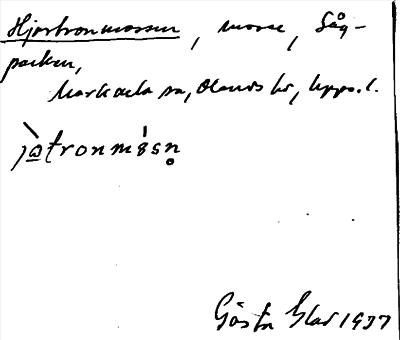 Hjortronmossen, mosse, Såg-
parken,
Markaela sn, Olands hd, Upps.l.
jòtronmósn̥
Gösta Glad 1937